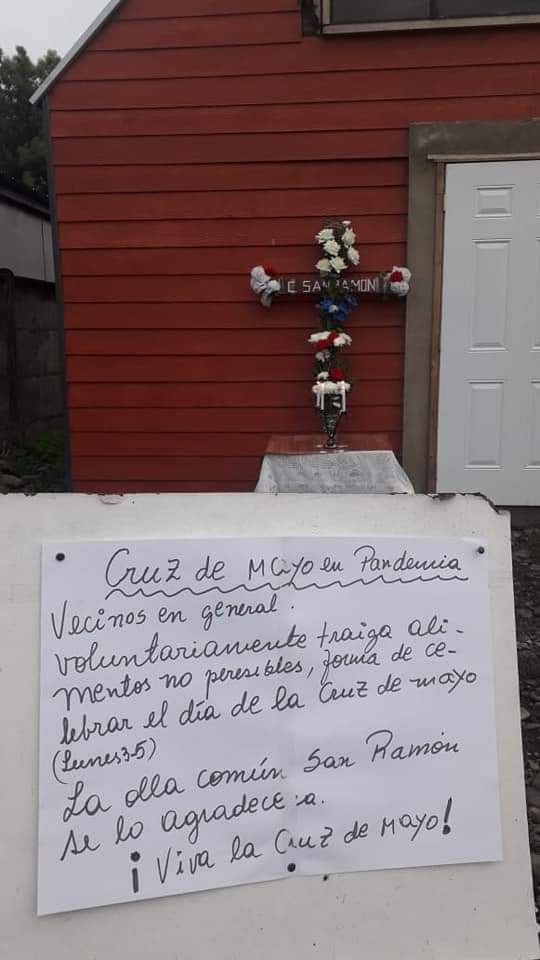 C SAN RAMON
Cruz de Mayo en Pandemia
Vecinos en general.
voluntariamente traiga ali-
mentos no peresibles, forma de ce-
lebrar el día de la Cruz de mayo
(Lunes 3-5)
La olla común San Ramón
se lo agradecera.
¡Viva la Cruz de Mayo!